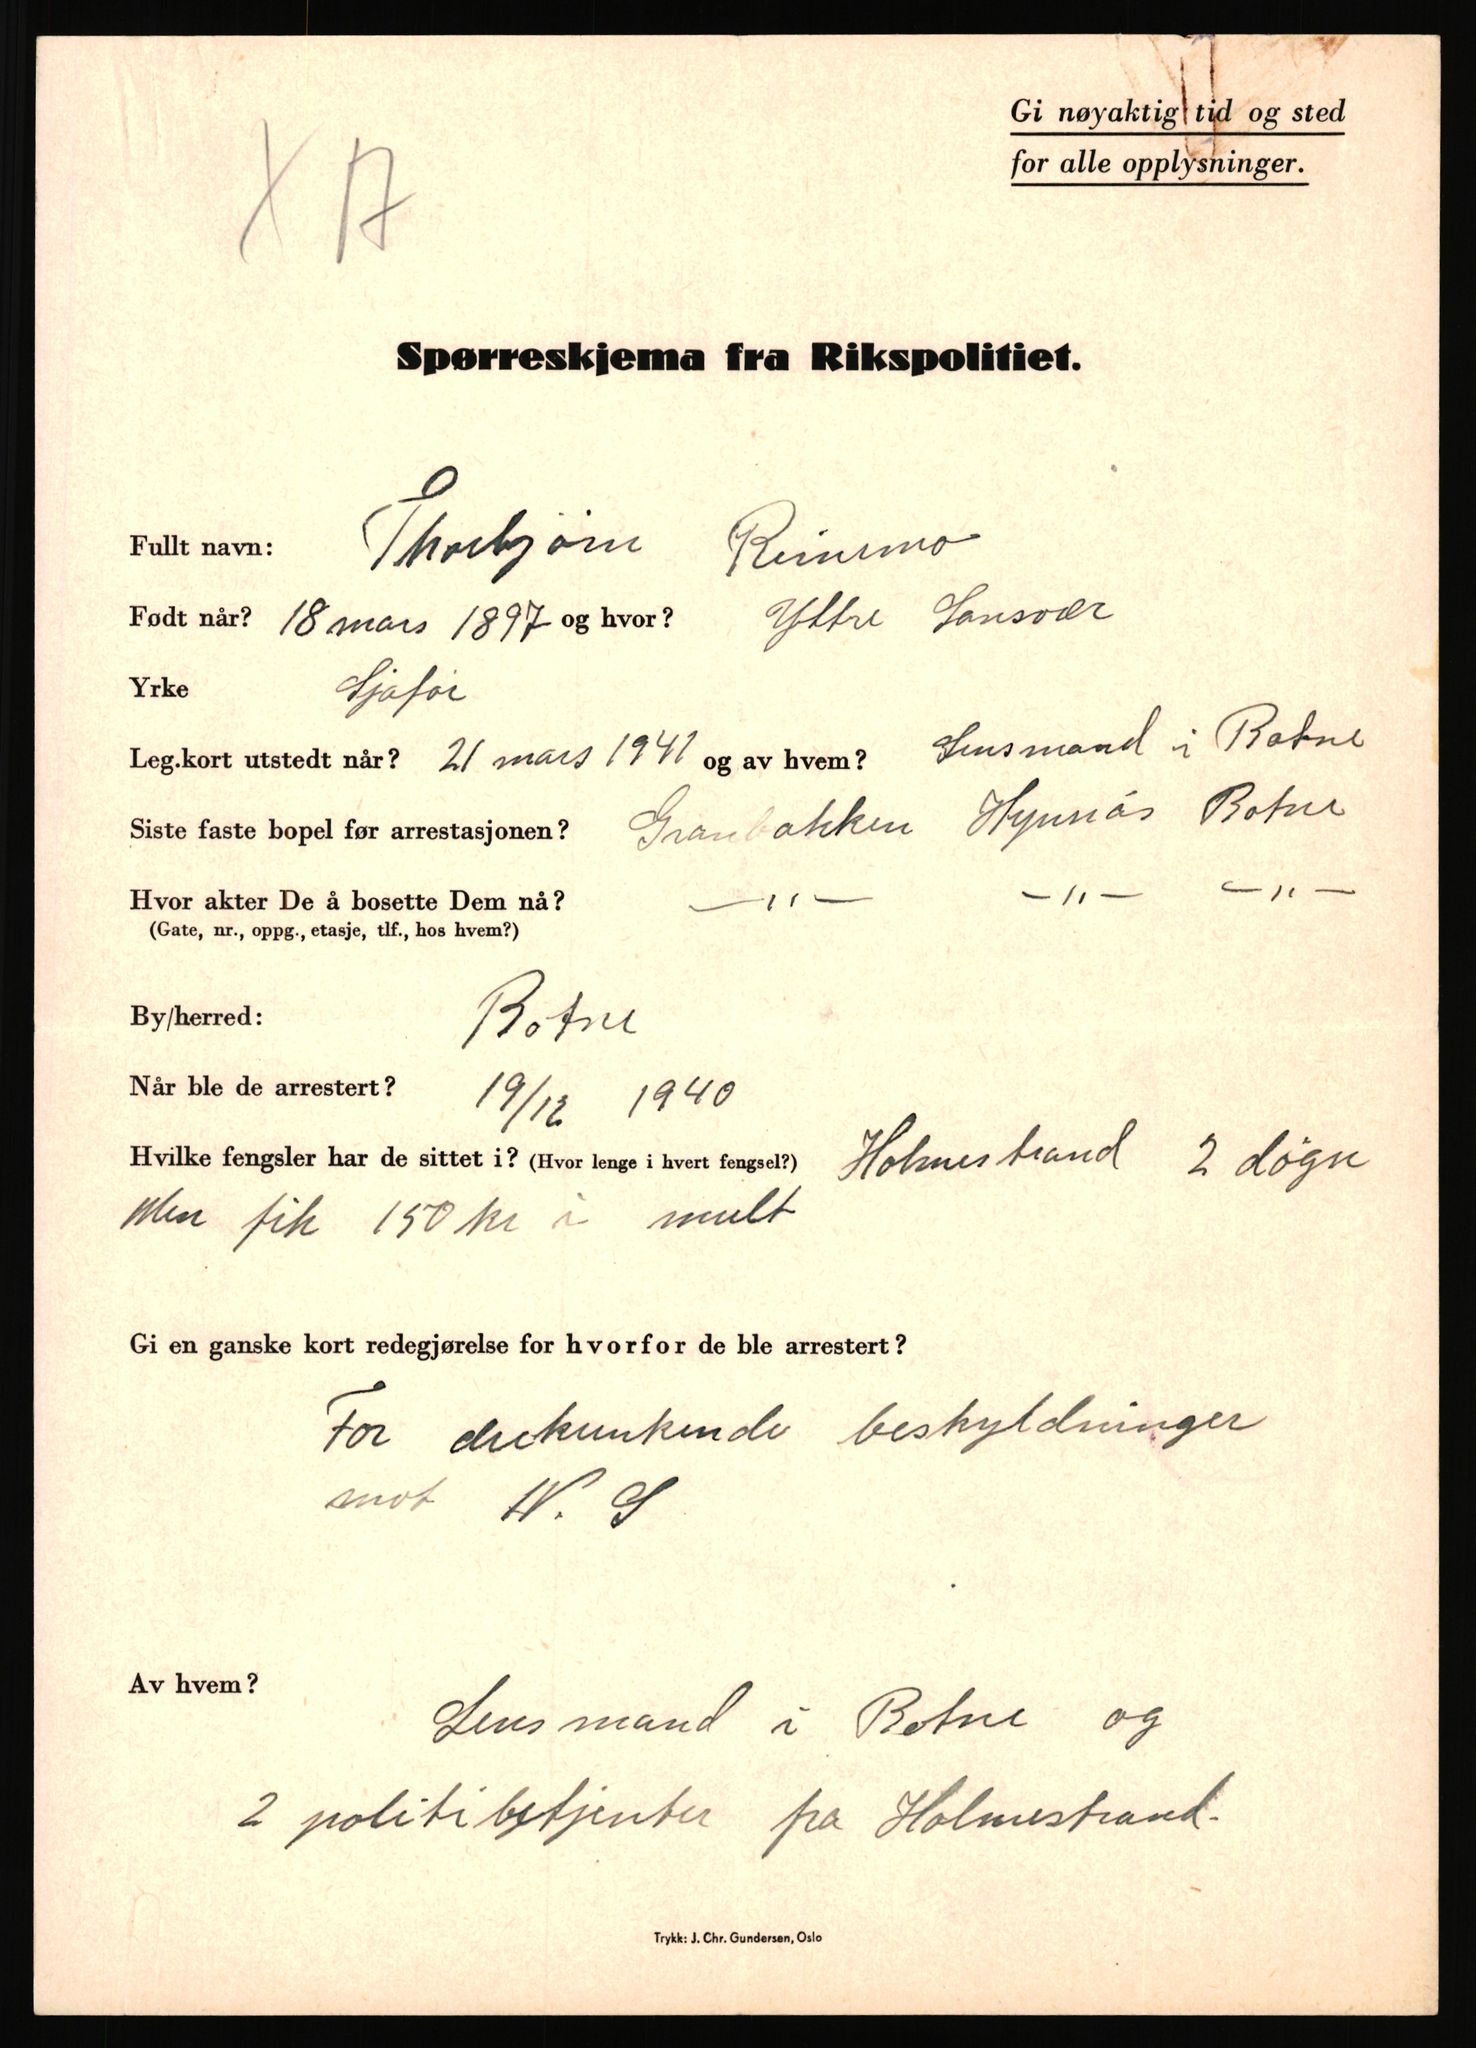 Gi nøyaktig tid og sted
for alle opplysninger.
X A
Spørreskjema fra Rikspolitiet.
Fullt navn: Thorbjørn Reinemo
Født når? 18 mars 1897 og hvor? Yttre Sansvær
Yrke Sjaför
Leg.kort utstedt når? 21 mars 1941 og av hvem? Lensmand i Botne
Siste faste bopel før arrestasjonen? Granbakken Hynnås Botne
Hvor akter De å bosette Dem nå? —"— —"— —"—
(Gate, nr., oppg., etasje, tlf., hos hvem?)
By/herred: Botne
Når ble de arrestert? 19/12 1940
Hvilke fengsler har de sittet i? (Hvor lenge i hvert fengsel?) Holmestrand 2 døgn
Men fik 150 kr i mult
Gi en ganske kort redegjørelse for hvorfor de ble arrestert?
For beskyldninger
mot N. S
Av hvem?
Lensmand i Botne og
2 politibetjenter fra Holmestrand.
Trykk: J. Chr. Gundersen, Oslo